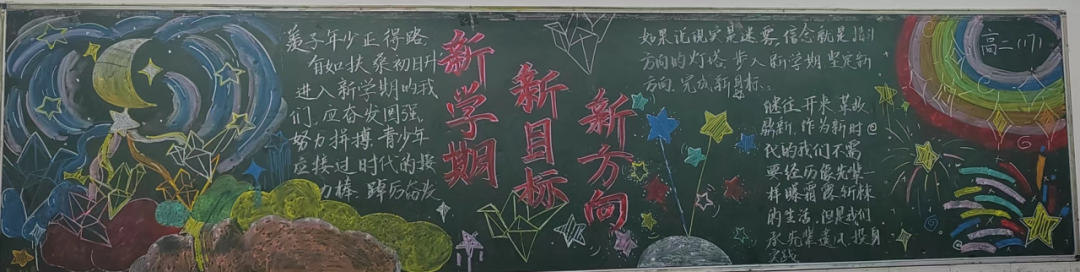 羡子年少正得路,
有如扶桑初日升
进入新学期的我
们,应奋发图强,
努力拼搏,青少年
应接过时代的接
力棒,踔厉奋发
新学期
新目标
新方向
如果说现实是迷雾,信念就是指引
方向的灯塔,步入新学期,坚定新
方向,完成新目标、
继往开来,革故
鼎新,作为新时
代的我们不需
要经历像先辈一
样曝霜露,斩荆棘
的生活,但是我们
承先辈遗风,投身
实践
高二(17)